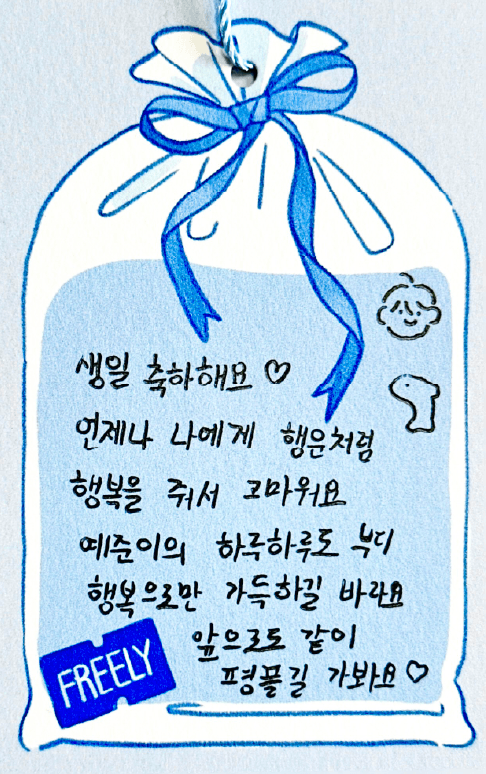 생일 축하해요 ♡
언제나 나에게 행운처럼
행복을 줘서 고마워요
예준이의 하루하루도 부디
행복으로만 가득하길 바라요
앞으로도 같이
평플길 가봐요 ♡
FREELY